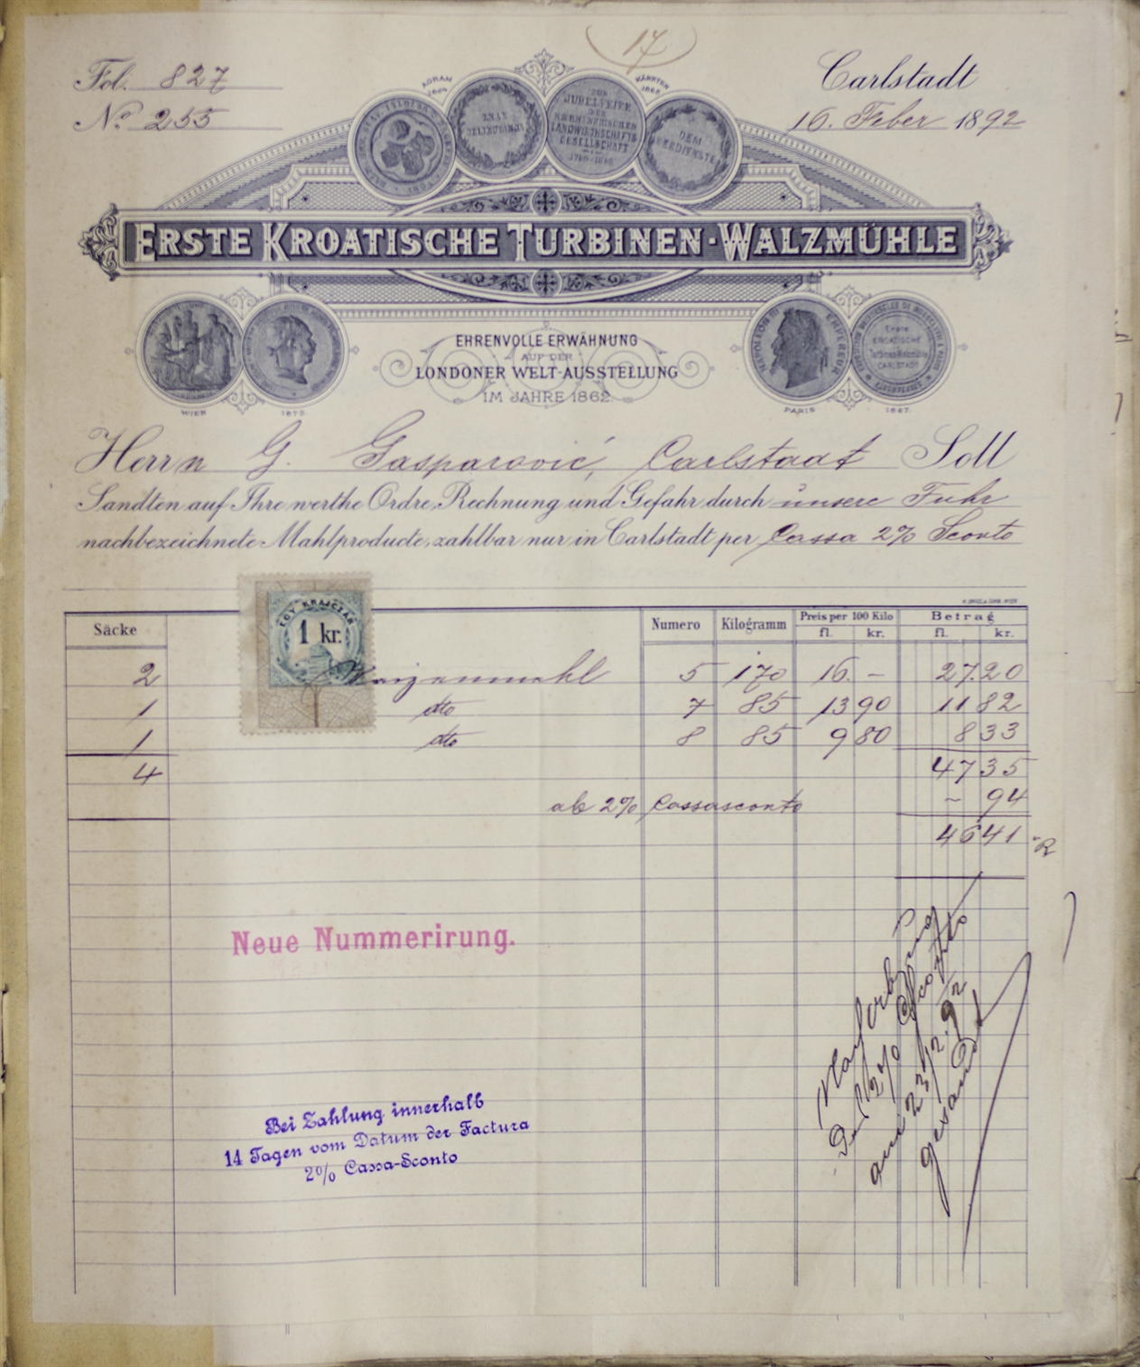 17
Fol. 827
No 255
Carlstadt
16. Feber 1892
AGRAM
1864
KÄRNTEN
1865
ZUR
JUBELFEIER
DER
KÄRNTNERISCHEN
LANDWIRTHSCHAFTS
GESELLSCHAFT
DEM
VERDIENSTE
ERSTE KROATISCHE TURBINEN-WALZMÜHLE
NAPOLEON III EMPEREUR
Erste
CROATISCHE
Turbinen Walzmühle
CARLSTADT
WIEN 1873.
PARIS 1867.
EHRENVOLLE ERWÄHNUNG
AUF DER
LONDONER WELT-AUSSTELLUNG
IM JAHRE 1862.
Herrn G. Gasparović, Carlstadt Soll
Sandten auf Ihre werthe Ordre, Rechnung und Gefahr durch unsere Fuhr
nachbezeichnete Mahlproducte, zahlbar nur in Carlstadt per Cassa 2% Sconto
Säcke Numero Kilogramm Preis per 100 Kilo Betrag
fl. kr. fl. kr.
EGY KRAJCZÁR
1 kr.
2 Waizenmehl 5 170 16. – 27.20
1 dto 7 85 13 90 11 82
1 dto 8 85 9 80 8 33
4 47 35
ab 2% Cassasconto – 94
46 41
Neue Nummerirung.
Bei Zahlung innerhalb
14 Tagen vom Datum der Factura
2% Cassa-Sconto
2% Sconto
23/2.92
gesandt